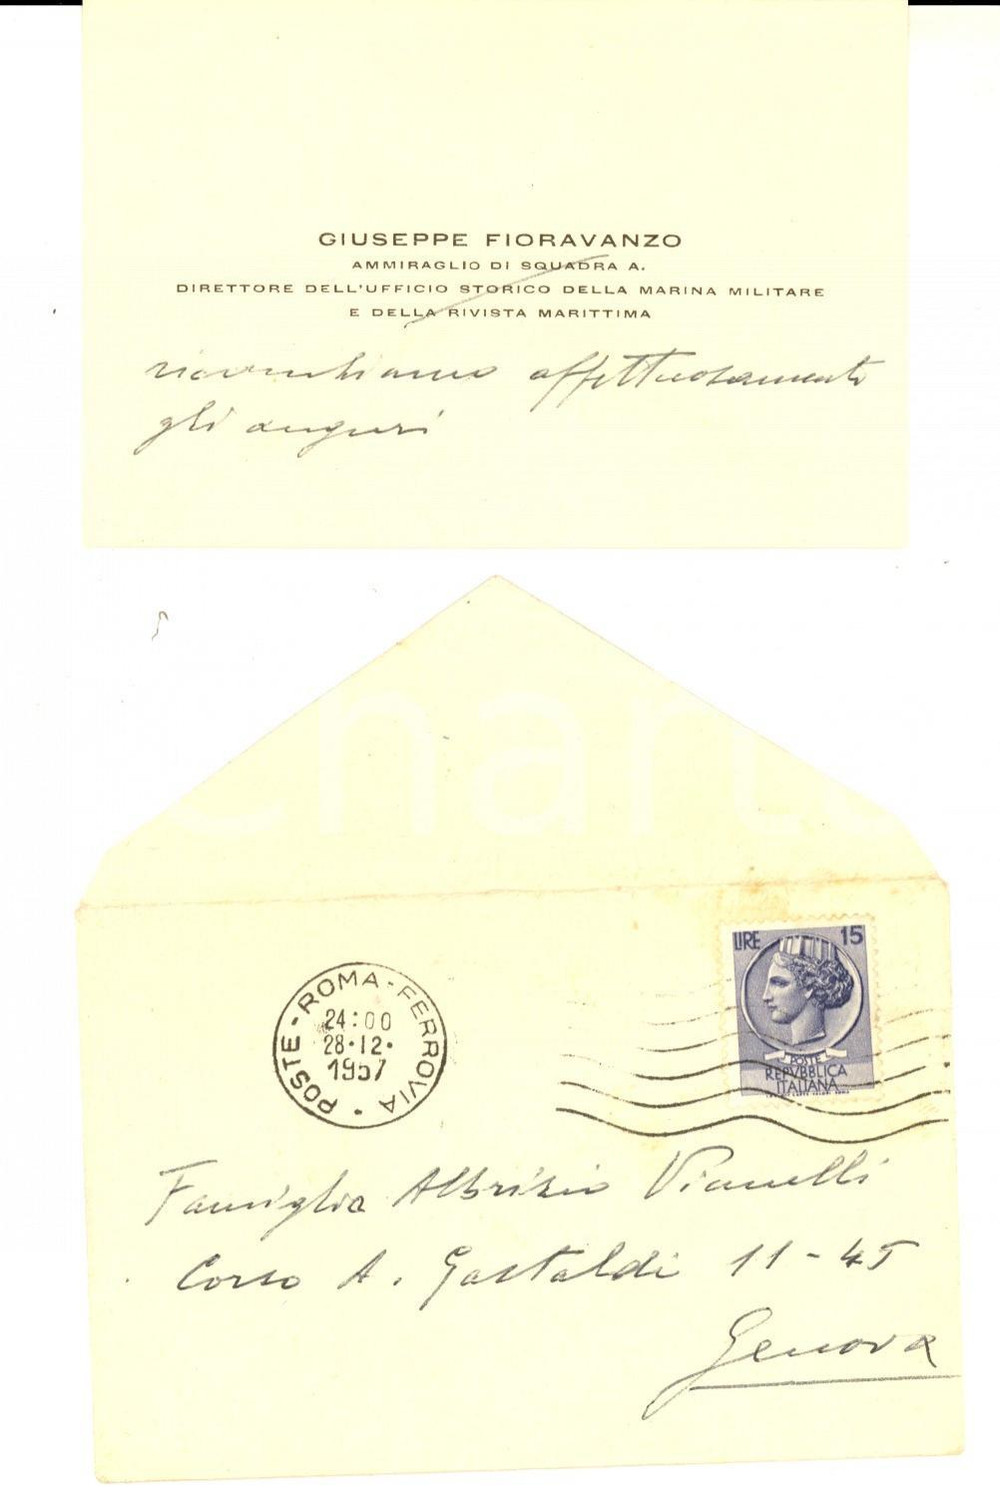 GIUSEPPE FIORAVANZO
AMMIRAGLIO DI SQUADRA A.
DIRETTORE DELL'UFFICIO STORICO DELLA MARINA MILITARE
E DELLA RIVISTA MARITTIMA
ricambiamo affettuosamente
gli auguri
charta
POSTE - ROMA - FERROVIA
24:00
28·12·
1957
LIRE 15
POSTE
REPVBBLICA
ITALIANA
Famiglia Albrisio Vianelli
Corso A. Gastaldi 11-45
Genova